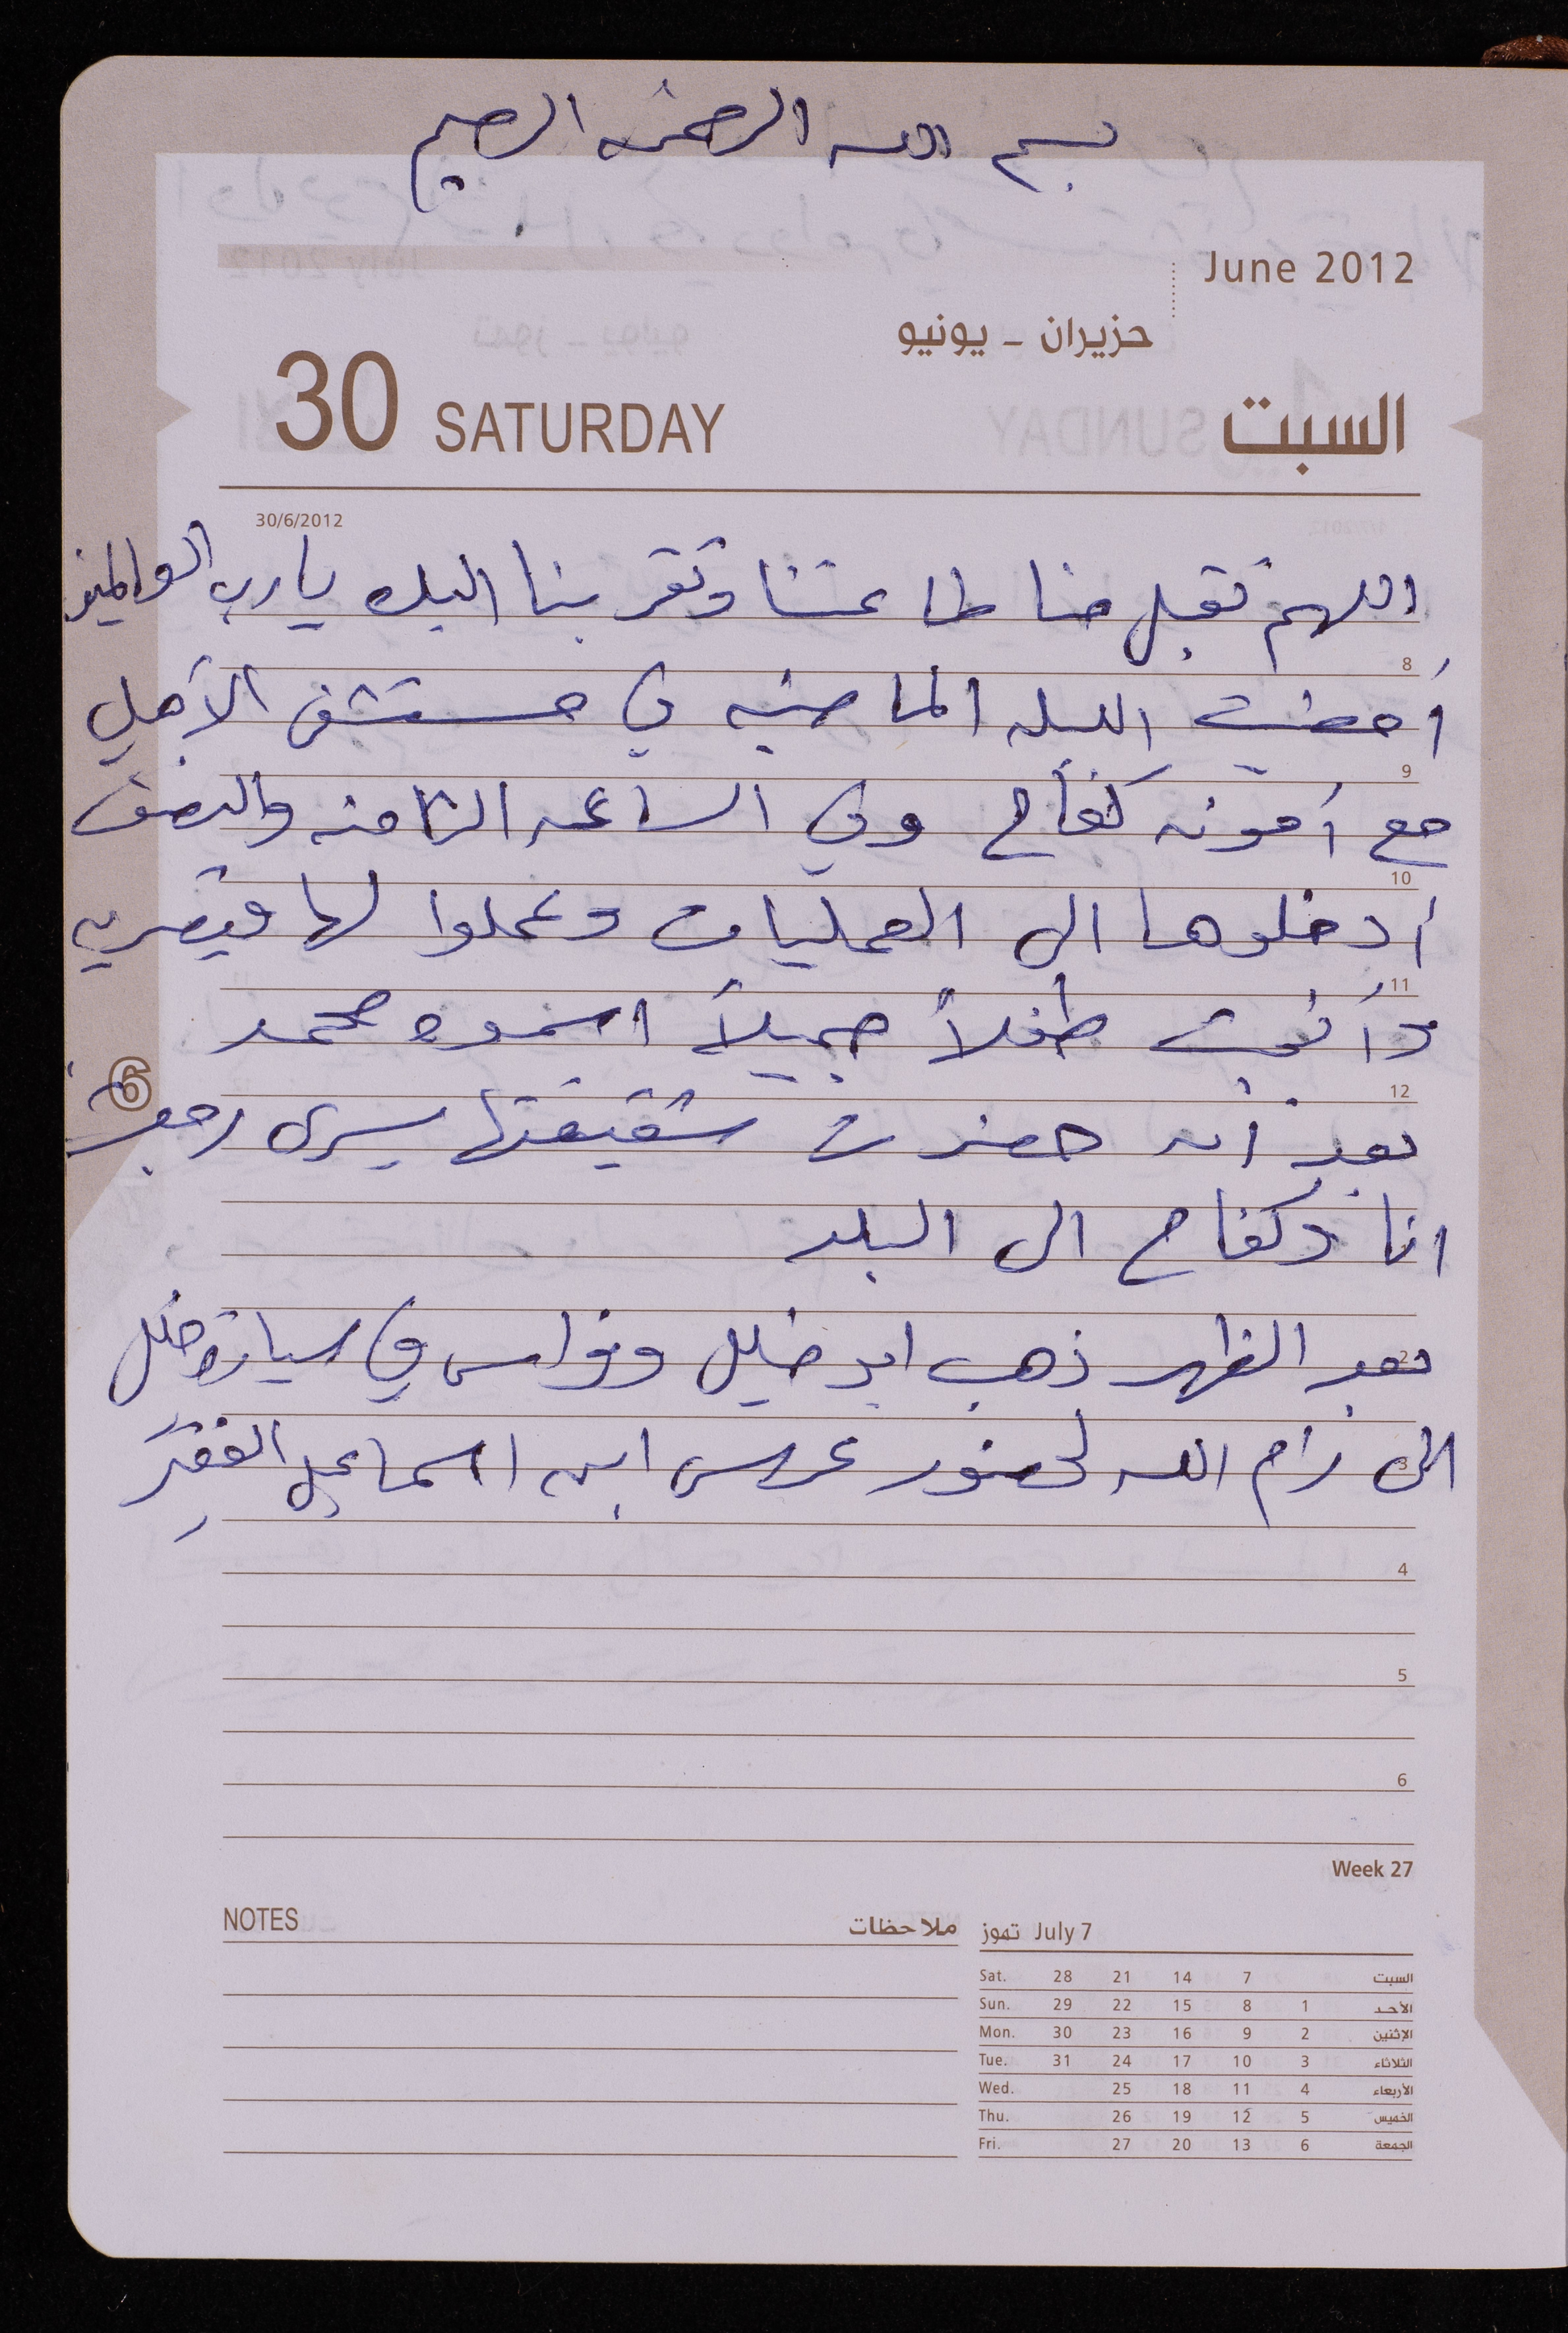 بسم الله الرحمن الرحيم
June 2012
حزيران - يونيو
30 SATURDAY السبت
30/6/2012
اللهم تقبل منا طاعتنا وتقربنا اليك يارب العالمين
8
أمضيت الليله الماضيه في مستشفى الأهلي
9
مع أمونه كفاح وفي الساعه الثامنه والنصف
10
أدخلوها الى العمليات وعملوا لها قيصريه
11
وأنجبت طفلاً جميلاً اسموه محمد
6
12
بعد أن حضرت شقيقتها يسرى رجعت
انا وكفاح الى البلد
2
بعد الظهر ذهب ابو خليل ونواس في سيارة خليل
3
الى رام الله لحضور عرس ابن اسماعيل الفقير
4
5
6
Week 27
NOTES ملاحظات
تموز July 7
Sat. 28 21 14 7 السبت
Sun. 29 22 15 8 1 الأحد
Mon. 30 23 16 9 2 الإثنين
Tue. 31 24 17 10 3 الثلاثاء
Wed. 25 18 11 4 الأربعاء
Thu. 26 19 12 5 الخميس
Fri. 27 20 13 6 الجمعة